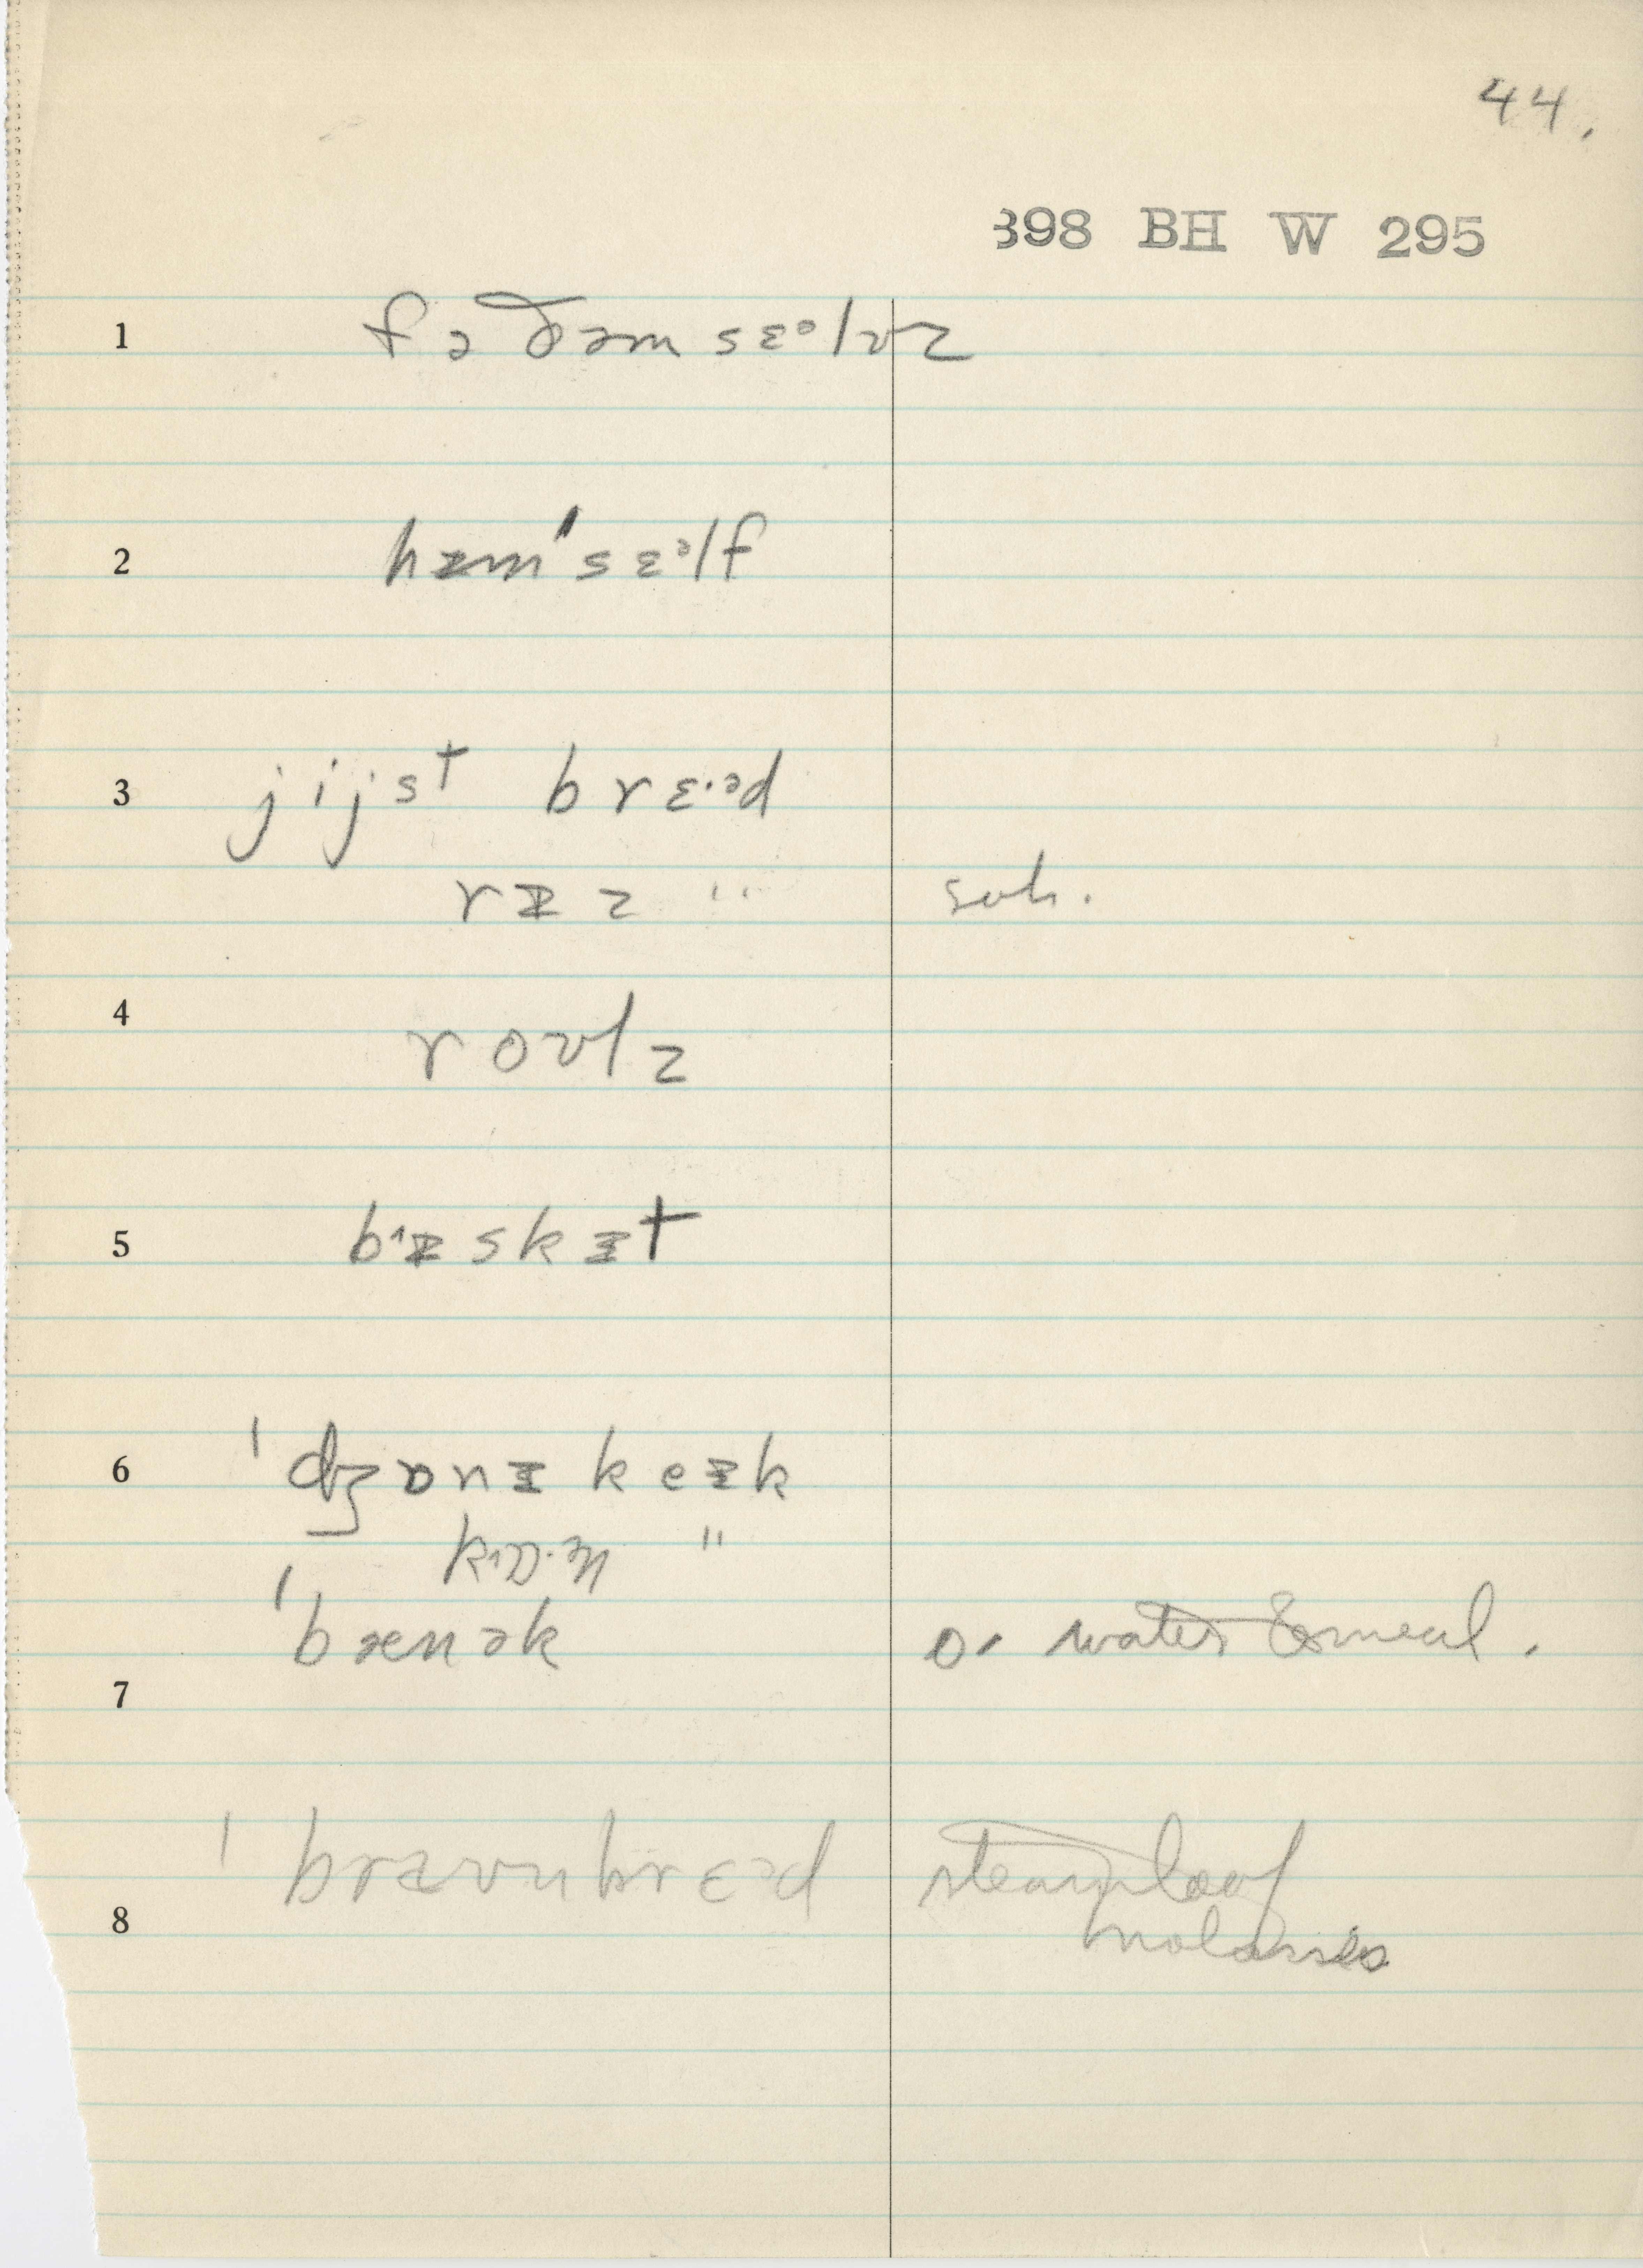 44.
398 BH W 295
1 fəðəmsɛᵊlvz
2 hɪmˈsɛᵊlf
3 jijst brɛ·ᵊd
rɪz " 
4 roʊlz
5 bɪskɪt
6 ˈdʒɒnɪ keɪk
"
ˈbænək o· water & meal.
7
ˈbraʊnbrɛᵊd steam loaf
8 molasses